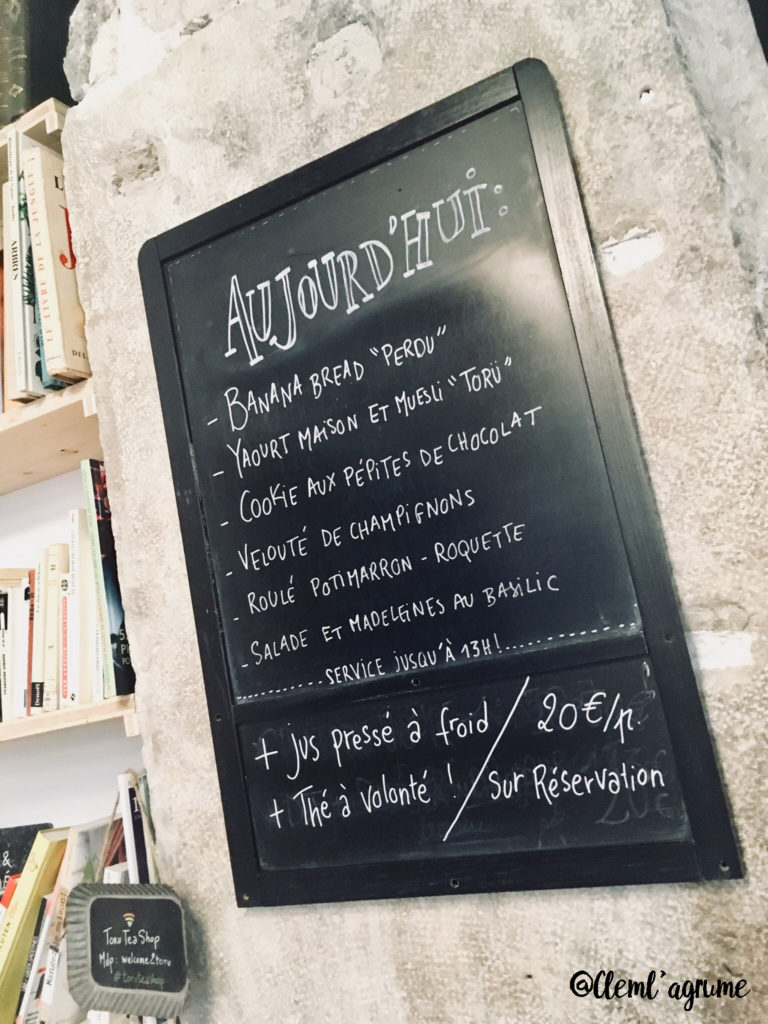 AUJOURD'HUI:
- BANANA BREAD "PERDU"
- YAOURT MAISON ET MUESLI "TORÜ"
- COOKIE AUX PÉPITES DE CHOCOLAT
- VELOUTÉ DE CHAMPIGNONS
- ROULÉ POTIMARRON - ROQUETTE
- SALADE ET MADELEINES AU BASILIC
SERVICE JUSQU'À 13H!
+ jus pressé à froid / 20€/p.
+ Thé à volonté ! / Sur Réservation
LE LIVRE DE LA JUNGLE
ARBRES
Toru Tea Shop
Mdp: welcome2toru
#toruteashop
@Cleml'agrume